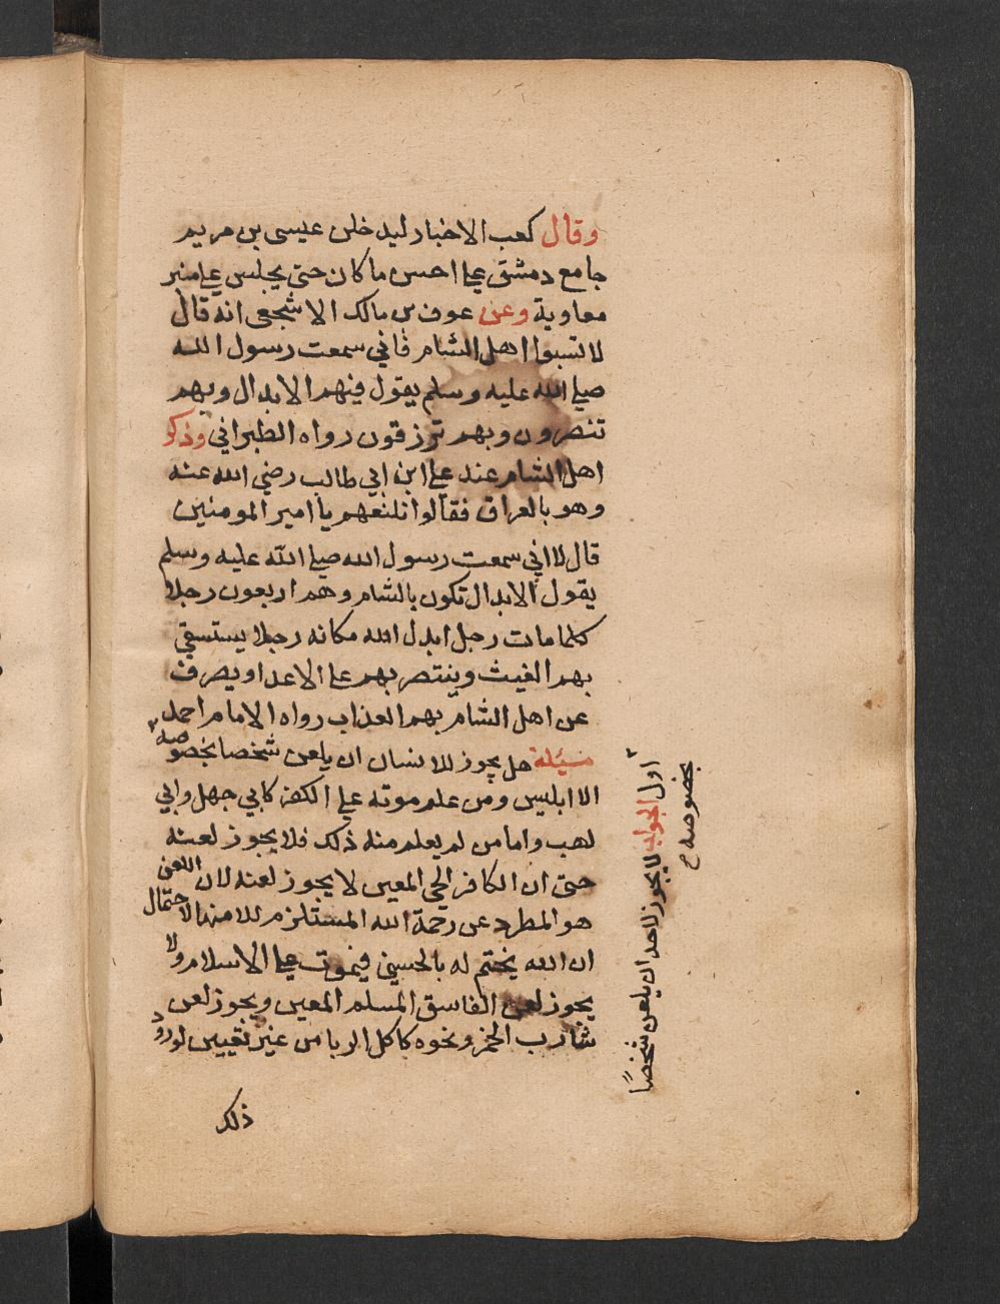 وقال كعب الاخبار ليدخلن عيسى بن مريم
جامع دمشق على احسن ما كان حتى يجلس على منبر
معاوية وعن عوف بن مالك الاشجعى انه قال
لا تسبوا اهل الشام فاني سمعت رسول الله
صلى الله عليه وسلم يقول فيهم الابدال وبهم
تنصرون وبهم ترزقون رواه الطبراني وذكر
اهل الشام عند على ابن ابي طالب رضي الله عنه
وهو بالعراق فقالوا نلعنهم يا امير المومنين
قال لا اني سمعت رسول الله صلى الله عليه وسلم
يقول الابدال تكون بالشام وهم اربعون رجلا
كلما مات رجل ابدل الله مكانه رجلا يستسقي
بهم الغيث وينتصر بهم على الاعدا ويصرف
عن اهل الشام بهم العذاب رواه الامام احمد
مسيئلة هل يجوز للانسان ان يلعن شخصا بخصوصه ٢
الا ابليس ومن علم موته على الكفر كابي جهل وابي
لهب واما من لم يعلم منه ذلك فلا يجوز لعنه
حتى ان الكافر الحي المعين لا يجوز لعنه لان اللعن
هو المطرد عن رحمة الله المستلزم للامنه الاحتمال
ان الله يختم له بالحسنى فيموت على الاسلام ولا
يجوز لعن الفاسق المسلم المعين ويجوز لعن
شارب الخمر ونحوه كاكل الربا من غير تعيين لورود
ذلك
٢ اول الجواب لا يجوز لاحد ان يلعن شخصاً
بخصوصه ح